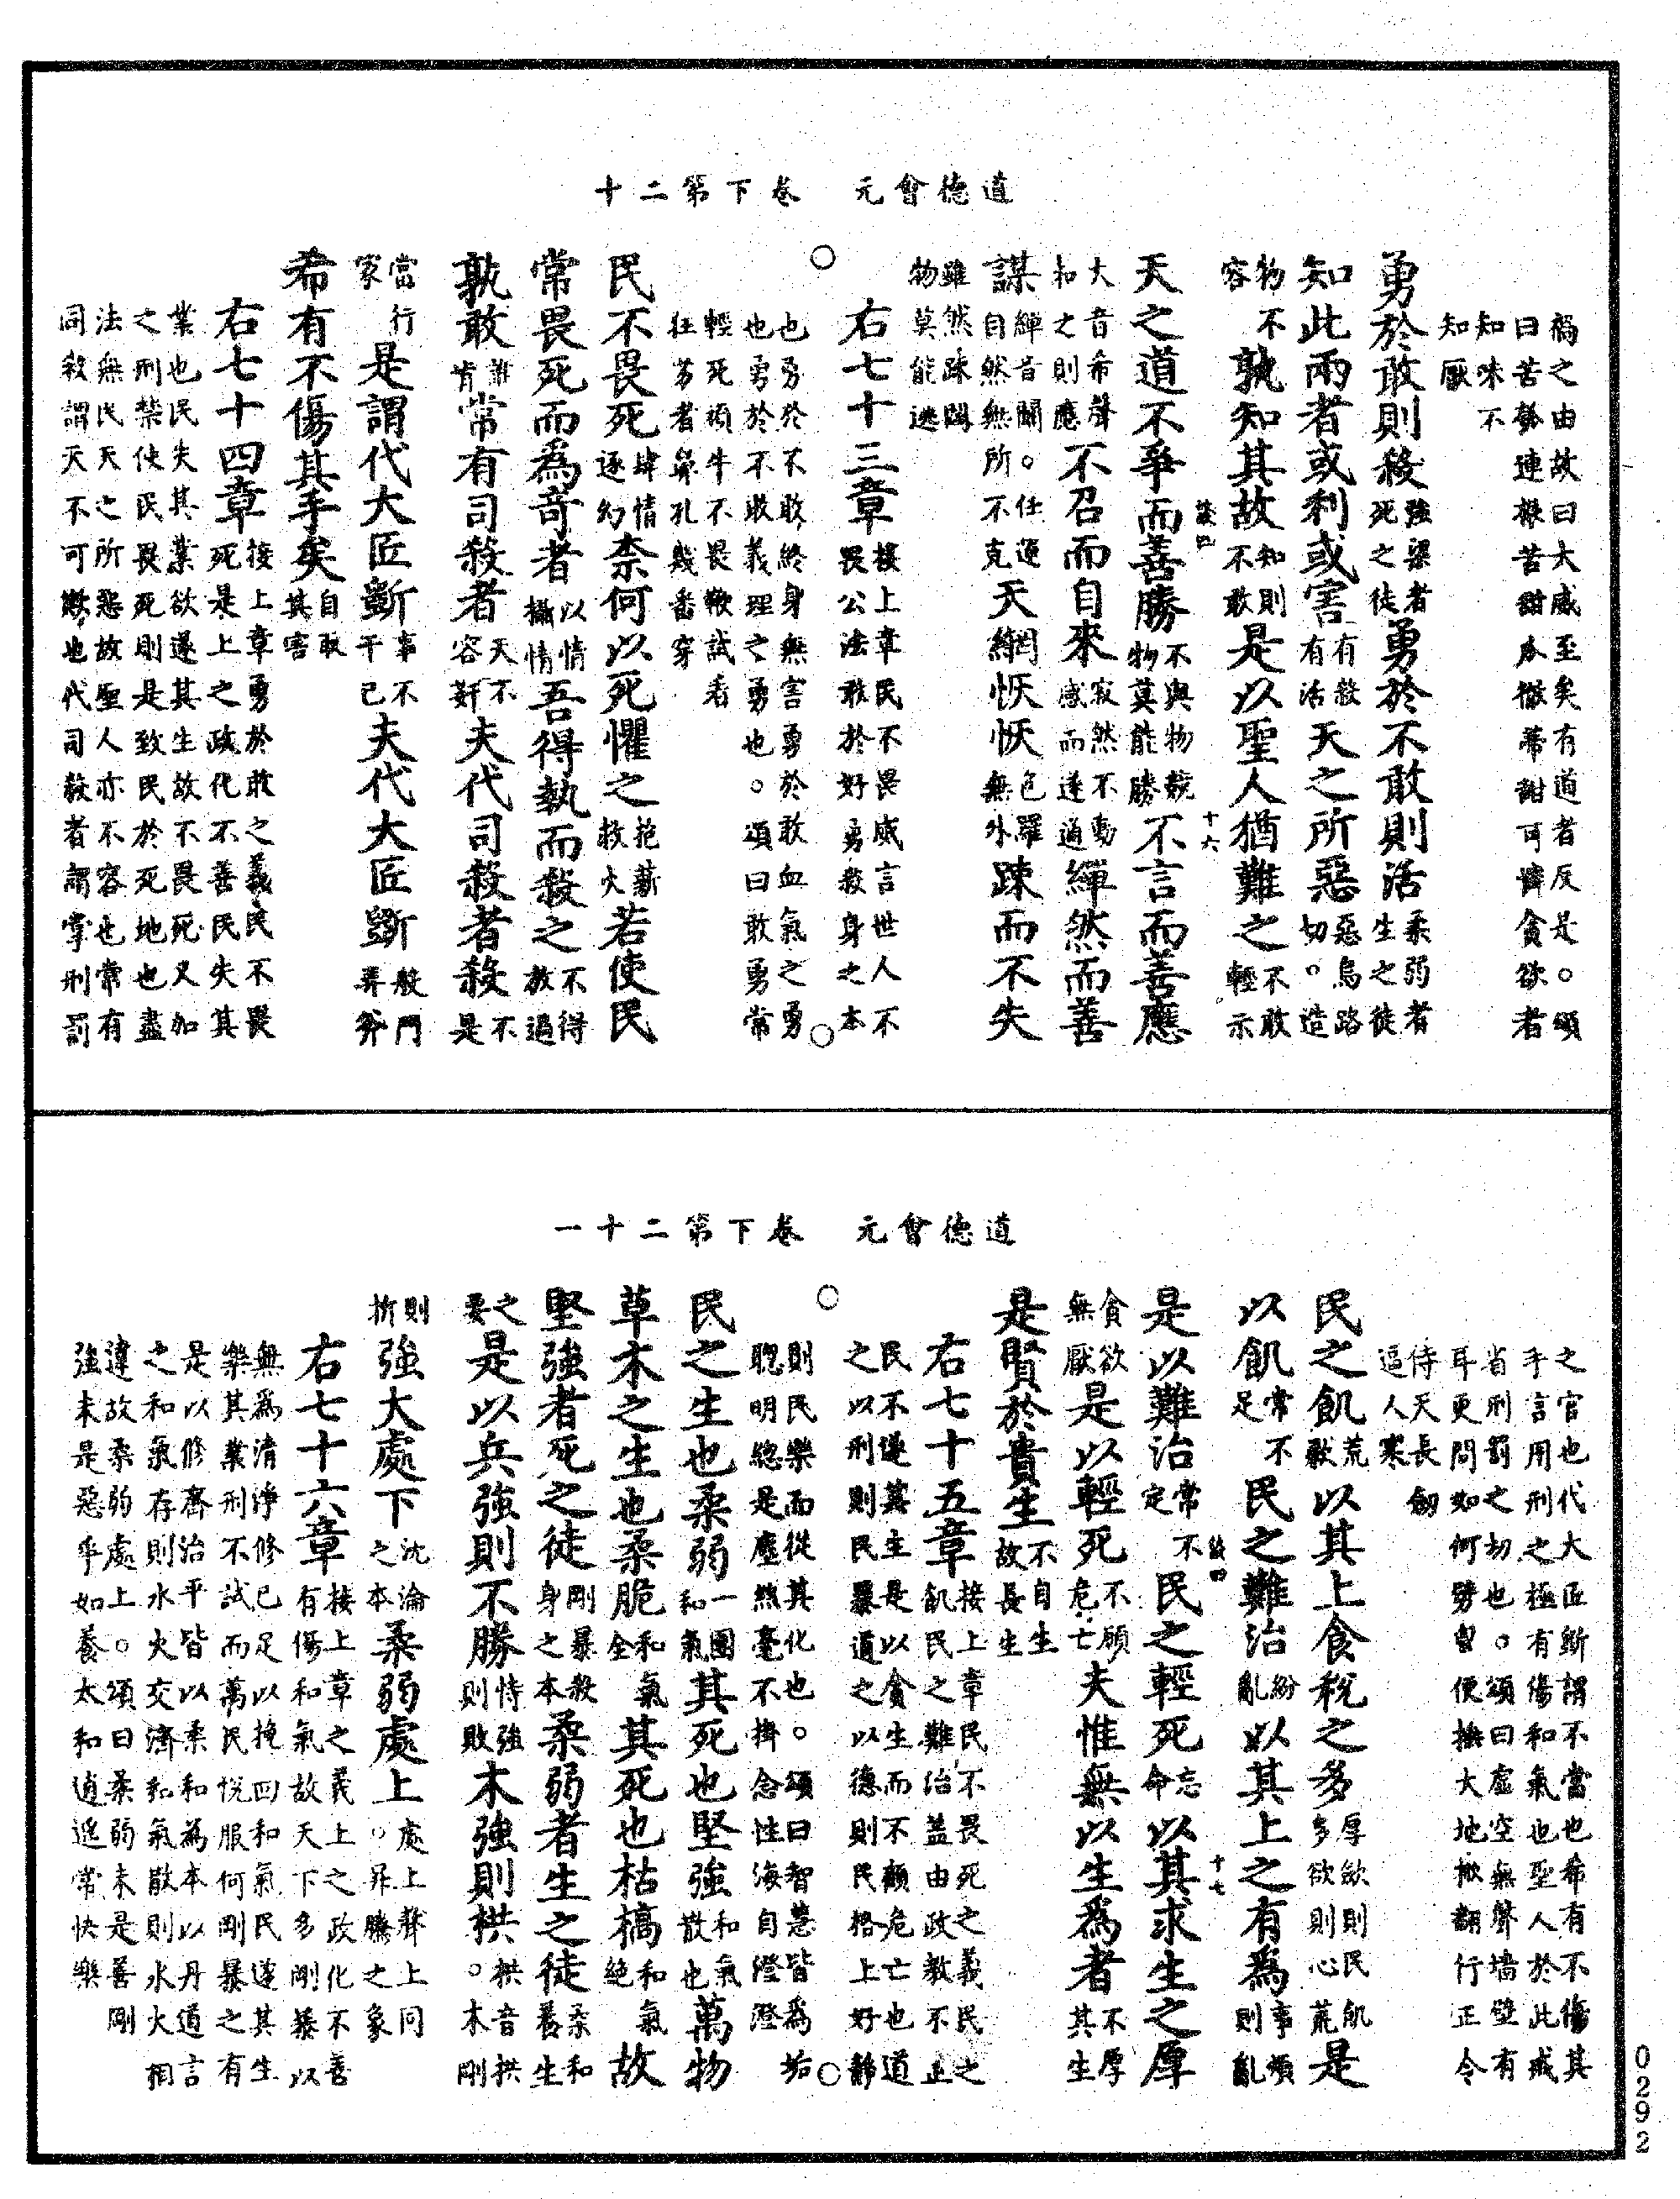 道德會元　卷下第二十
禍之由故曰大威至矣有道者反是。頌
曰苦瓠連根苦甜瓜徹蒂甜可憐貪欲者
知味不
知厭
勇於敢則殺強梁者死之徒勇於不敢則活柔弱者生之徒
知此兩者或利或害有殺有活天之所惡惡烏路切。造
物不容孰知其故知則不敢是以聖人猶難之不敢輕示
天之道不爭而善勝不與物競物莫能勝不言而善應
大音希聲和之則應不召而自來寂然不動感而遂通繟然而善
謀繟音闡。任運自然無所不克天網恢恢包羅無外踈而不失
雖然踈闊物莫能逃
右七十三章接上章民不畏威言世人不畏公法敢於好勇殺身之本
也勇於不敢終身無害勇於敢血氣之勇
也勇於不敢義理之勇也。頌曰敢勇常
輕死頑牛不畏鞭試看
狂勞者鼻孔幾番穿
民不畏死肆情逐幻柰何以死懼之抱薪救火若使民
常畏死而為奇者以情攝情吾得執而殺之不得教過
孰敢誰肯常有司殺者天不容姧夫代司殺者殺不是
當行家是謂代大匠斲事不干己夫代大匠斲般門弄斧
希有不傷其手矣自取其害
右七十四章接上章勇於敢之義民不畏死是上之政化不善民失其
業也民失其業欲遂其生故不畏死又加
之刑禁使民畏死則是致民於死地也盡
法無民天之所惡故聖人亦不容也常有
同殺謂天不可欺也代司殺者謂掌刑罰
道德會元　卷下第二十一
之官也代大匠斲謂不當也希有不傷其
手言用刑之極有傷和氣也聖人於此戒
省刑罰之切也。頌曰虛空無聲墻壁有
耳更問如何劈曾便撫大地掀翻行正令
侍天長劒
逼人寒
民之飢荒歉以其上食稅之多厚歛則民飢多欲則心荒是
以飢常不足民之難治紛亂以其上之有為事煩則亂
是以難治常不定民之輕死忘命以其求生之厚
貪欲無厭是以輕死不顧危亡夫惟無以生為者不厚其生
是賢於貴生不自生故長生
右七十五章接上章民不畏死之義民之飢民之難治盖由政教不正
民不遂其生是以貪生而不顧危亡也道
之以刑則民暴道之以德則民格上好靜
則民樂而從其化也。頌曰智慧皆為垢
聰明總是塵纖毫不掛念性海自澄澄
民之生也柔弱一團和氣其死也堅強和氣散也萬物
草木之生也柔脆和氣全其死也枯槁和氣絶故
堅強者死之徒剛暴殺身之本柔弱者生之徒柔和養生
之要是以兵強則不勝恃強則敗木強則栱。栱音拱木剛
則折強大處下沈淪之本柔弱處上。處上聲上同昇騰之象
右七十六章接上章之義上之政化不善有傷和氣故天下多剛暴以
無為清淨修己足以挽回和氣民遂其生
樂其業刑不試而萬民悅服何剛暴之有
是以修齊治平皆以柔和為本以丹道言
之和氣存則水火交濟和氣散則水火相
違故柔弱處上。頌曰柔弱未是善剛
強未是惡爭如養太和逍遥常快樂
談四
十六
談四
十七
0292